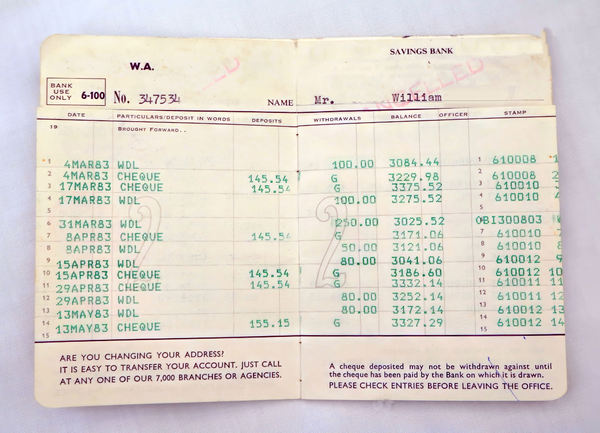 W.A.
SAVINGS BANK
CANCELLED
BANK USE ONLY 6-100 No. 347534 NAME Mr. William
DATE PARTICULARS/DEPOSIT IN WORDS DEPOSITS WITHDRAWALS BALANCE OFFICER STAMP
19 BROUGHT FORWARD..
1 4MAR83 WDL 100.00 3084.44 1 610008 1
2 4MAR83 CHEQUE 145.54 G 3229.98 2 610008 2
3 17MAR83 CHEQUE 145.54 G 3375.52 3 610010 3
4 17MAR83 WDL 100.00 3275.52 4 610010 4
5 5
6 31MAR83 WDL 250.00 3025.52 OBI300803
7 8APR83 CHEQUE 145.54 G 3171.06 7 610010
8 8APR83 WDL 50.00 3121.06 8 610010 8
9 15APR83 WDL 80.00 3041.06 9 610012 9
10 15APR83 CHEQUE 145.54 G 3186.60 10 610012 10
11 29APR83 CHEQUE 145.54 G 3332.14 11 610011 11
12 29APR83 WDL 80.00 3252.14 12 610011 12
13 13MAY83 WDL 80.00 3172.14 13 610012 13
14 13MAY83 CHEQUE 155.15 G 3327.29 14 610012 14
15 15
2 2
ARE YOU CHANGING YOUR ADDRESS?
IT IS EASY TO TRANSFER YOUR ACCOUNT. JUST CALL
AT ANY ONE OF OUR 7,000 BRANCHES OR AGENCIES.
A cheque deposited may not be withdrawn against until
the cheque has been paid by the Bank on which it is drawn.
PLEASE CHECK ENTRIES BEFORE LEAVING THE OFFICE.